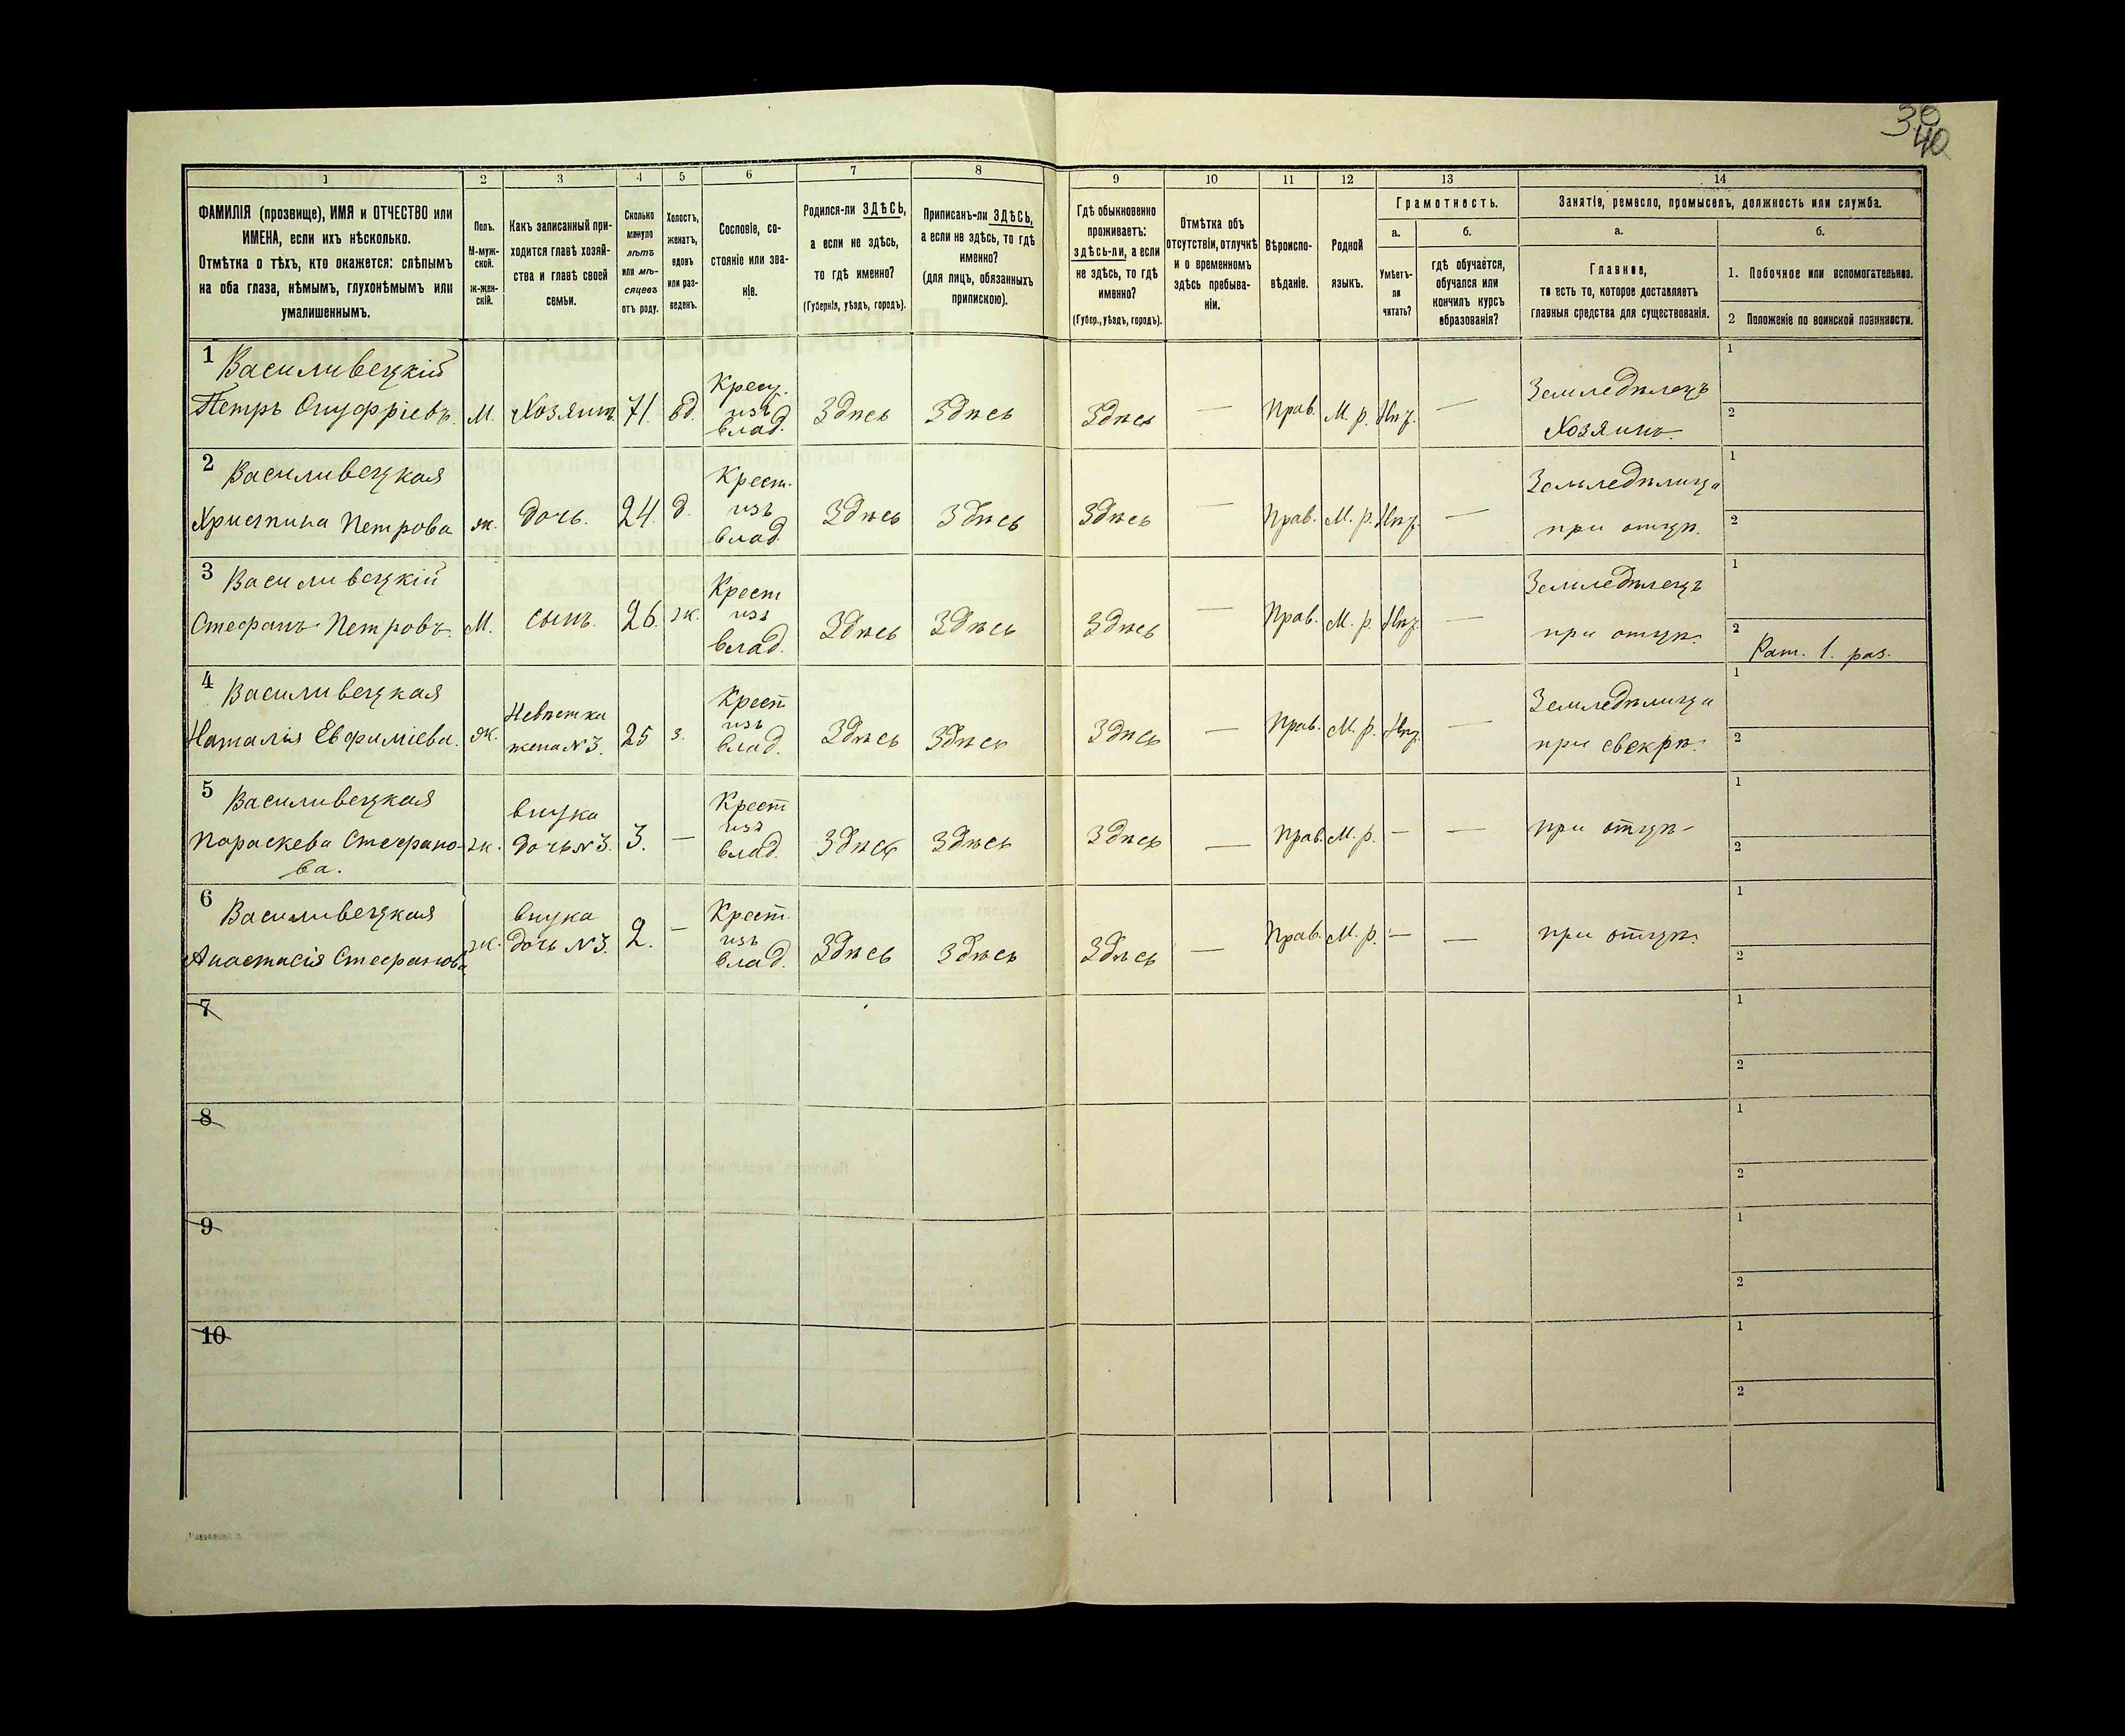 30
40
1
2
3
4
5
6
7
8
9
10
11
12
13
14
ФАМИЛІЯ (прозвище), ИМЯ и ОТЧЕСТВО или
ИМЕНА, если ихъ нѣсколько.
Отмѣтка о тѣхъ, кто окажется: слѣпымъ
на оба глаза, нѣмымъ, глухонѣмымъ или
умалишеннымъ.
Полъ.
М-муж-
ской.
Ж-жен-
скій.
Какъ записанный при-
ходится главѣ хозяй-
ства и главѣ своей
семьи.
Сколько
минуло
лѣтъ
или мѣ-
сяцевъ
отъ роду.
Холостъ,
женатъ,
вдовъ
или раз-
веденъ.
Сословіе, со-
стояніе или зва-
ніе.
Родился-ли ЗДѢСЬ,
а если не здѣсь,
то гдѣ именно?
(Губернія, уѣздъ, городъ).
Приписанъ-ли ЗДѢСЬ,
а если не здѣсь, то гдѣ
именно?
(для лицъ, обязанныхъ
припискою).
Гдѣ обыкновенно
проживаетъ:
здѣсь-ли, а если
не здѣсь, то гдѣ
именно?
(Губер., уѣздъ, городъ).
Отмѣтка объ
отсутствіи, отлучкѣ
и о временномъ
здѣсь пребыва-
ніи.
Вѣроиспо-
вѣданіе.
Родной
языкъ.
Грамотность.
а.
Умѣетъ-
ли
читать?
б.
гдѣ обучается,
обучался или
кончилъ курсъ
образованія?
Занятіе, ремесло, промыселъ, должность или служба.
а.
Главное,
то есть то, которое доставляетъ
главныя средства для существованія.
б.
1. Побочное или вспомогательное.
2 Положеніе по воинской повинности.
1
Василивецкій
Петръ Онуфріевъ.
М.
Хозяинъ.
71.
вд.
Крест.
изъ
влад.
Здѣсь
Здѣсь
Здѣсь
—
Прав.
М. р.
Нѣт.
—
Земледѣлецъ
Хозяинъ.
1
2
2
Василивецкая
Христина Петрова
ж.
дочь.
24.
д.
Крест.
изъ
влад.
Здѣсь
Здѣсь
Здѣсь
—
Прав.
М. р.
Нѣт.
—
Земледѣлица
при отцѣ.
1
2
3
Василивецкій
Стефанъ Петровъ.
М.
сынъ.
26.
ж.
Крест
изъ
влад.
Здѣсь
Здѣсь
Здѣсь
—
Прав.
М. р.
Нѣт.
—
Земледѣлецъ
при отцѣ.
1
2
Рат. 1. раз.
4
Василивецкая
Наталія Евфиміева.
ж.
Невѣстка
жена №3.
25
з.
Крест
изъ
влад.
Здѣсь
Здѣсь
Здѣсь
—
Прав.
М. р.
Нѣт.
—
Земледѣлица
при свекрѣ.
1
2
5
Василивецкая
Параскева Стефано-
ва.
ж.
внука
дочь №3.
3.
—
Крест
изъ
влад.
Здѣсь
Здѣсь
Здѣсь
—
Прав.
М. р.
—
—
при отцѣ
1
2
6
Василивецкая
Анастасія Стефанова
ж.
внука
дочь №3.
2.
—
Крест.
изъ
влад.
Здѣсь
Здѣсь
Здѣсь
—
Прав.
М. р.
—
—
при отцѣ.
1
2
7
1
2
8
1
2
9
1
2
10
1
2